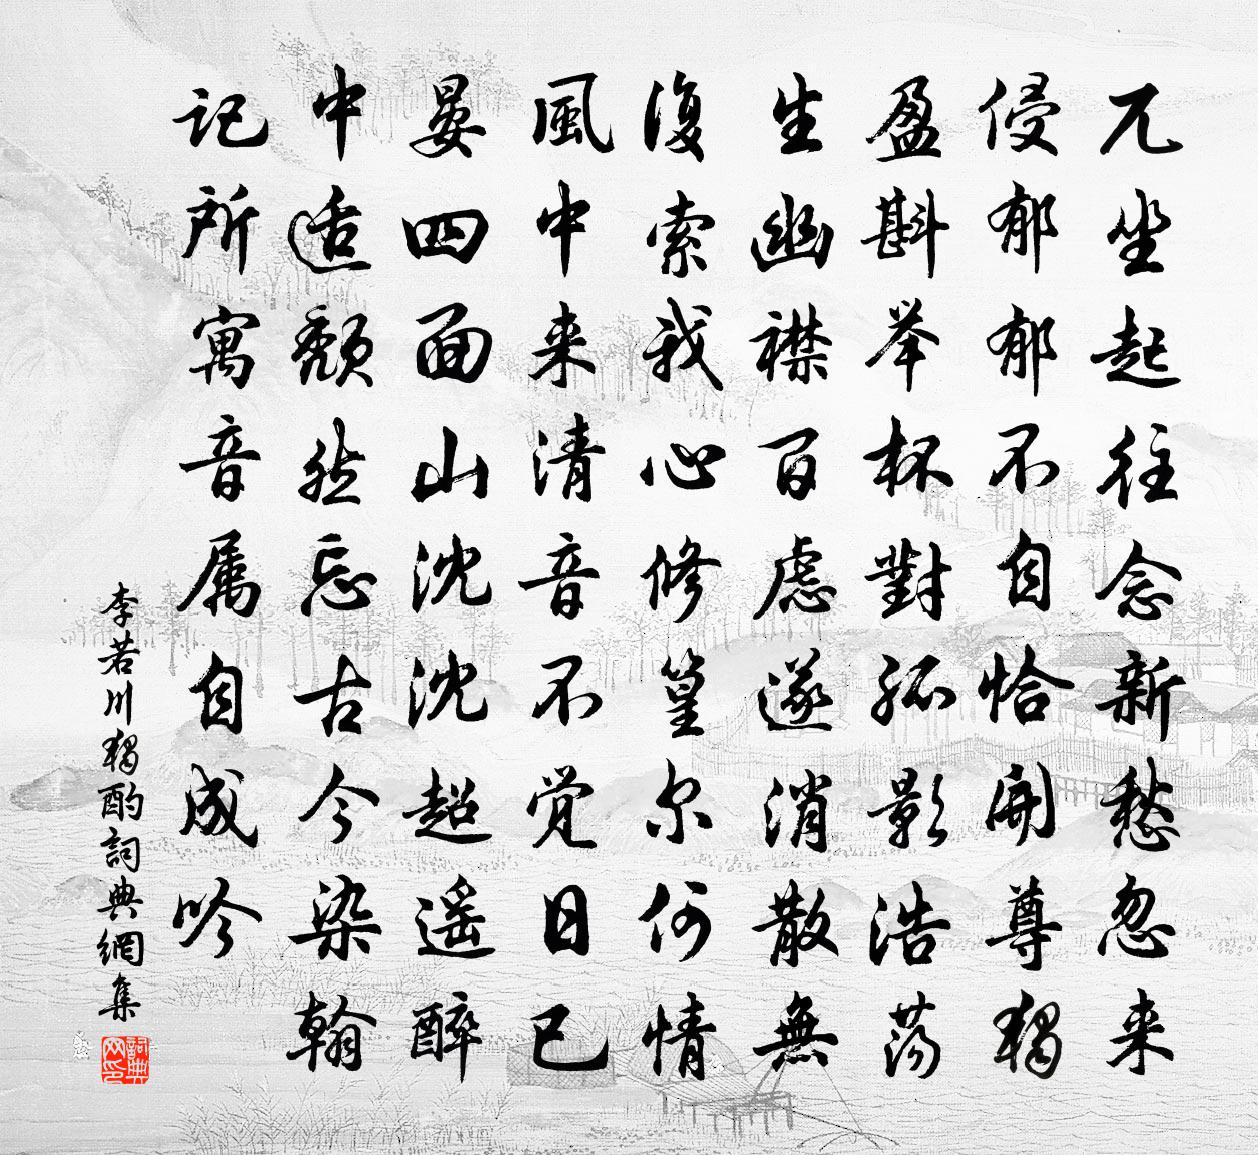 兀坐起往念新愁忽来
侵郁郁不自恰開尊獨
盈斟举杯對孤影浩荡
生幽襟百虑遂消散無
復索我心修篁尔何情
風中来清音不觉日已
晏四面山沈沈超遥醉
中适颓然忘古今染翰
记所寓音属自成吟
李若川獨酌詞典網集
詞典网印